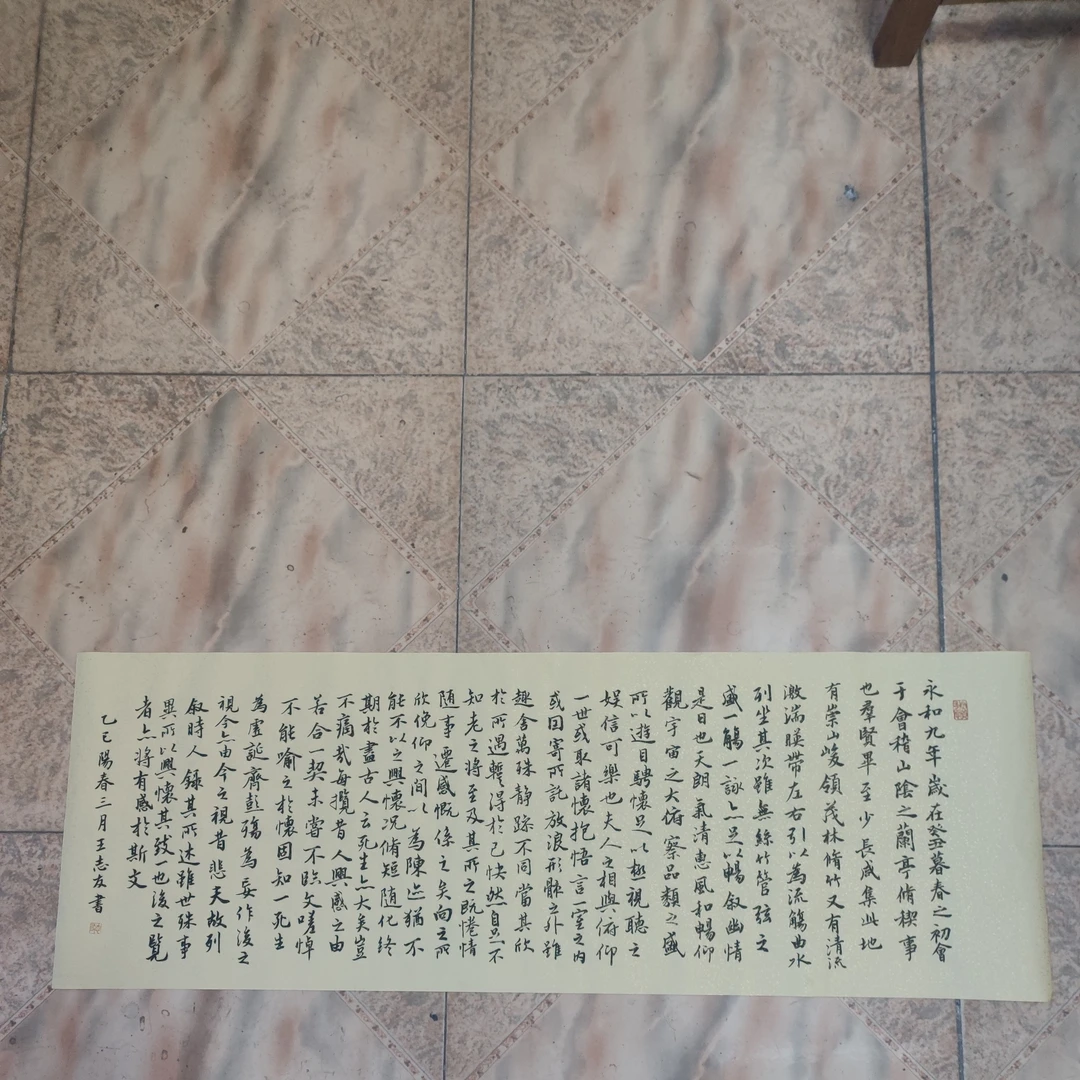 永和九年歲在癸丑暮春之初會
于會稽山陰之蘭亭脩禊事
也羣賢畢至少長咸集此地
有崇山峻領茂林脩竹又有清流
激湍暎帶左右引以為流觴曲水
列坐其次雖無絲竹管弦之
盛一觴一詠亦足以暢敘幽情
是日也天朗氣清惠風和暢仰
觀宇宙之大俯察品類之盛
所以遊目騁懷足以極視聽之
娛信可樂也夫人之相與俯仰
一世或取諸懷抱悟言一室之內
或因寄所託放浪形骸之外雖
趣舍萬殊靜躁不同當其欣
於所遇暫得於己快然自足不
知老之將至及其所之既惓情
隨事遷感慨係之矣向之所
欣俛仰之間以為陳迹猶不
能不以之興懷況脩短隨化終
期於盡古人云死生亦大矣豈
不痛哉每攬昔人興感之由
若合一契未嘗不臨文嗟悼
不能喻之於懷固知一死生
為虛誕齊彭殤為妄作後之
視今亦由今之視昔悲夫故列
敘時人錄其所述雖世殊事
異所以興懷其致一也後之覽
者亦將有感於斯文
乙巳陽春三月王志友書